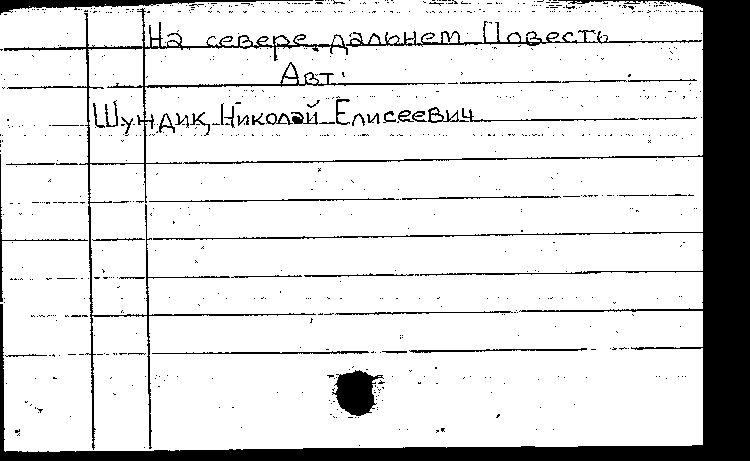 На севере дальнем. Повесть
Авт:
Шундик, Николай Елисеевич